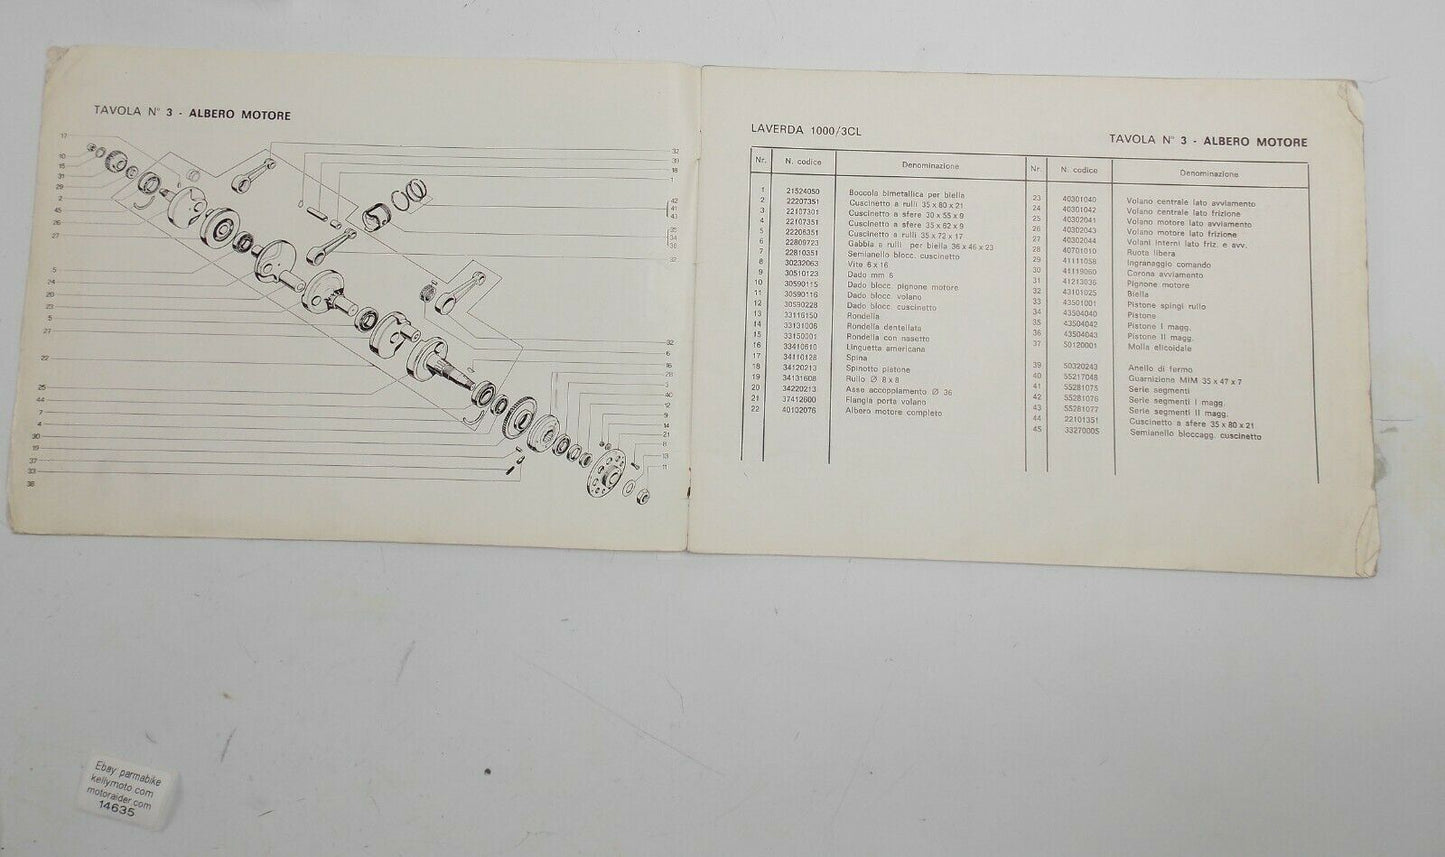 TAVOLA N° 3 - ALBERO MOTORE
17
10
15
31
29
2
45
26
27
5
24
20
23
5
27
22
25
44
7
4
30
19
37
33
38
32
39
18
1
42
41
43
35
34
36
32
32
6
16
28
3
40
12
9
14
21
8
13
11
LAVERDA 1000/3CL
TAVOLA N° 3 - ALBERO MOTORE
Nr. N. codice Denominazione
1 21524050 Boccola bimetallica per biella
2 22207351 Cuscinetto a rulli 35 x 80 x 21
3 22107301 Cuscinetto a sfere 30 x 55 x 9
4 22107351 Cuscinetto a sfere 35 x 62 x 9
5 22206351 Cuscinetto a rulli 35 x 72 x 17
6 22809723 Gabbia a rulli per biella 36 x 46 x 23
7 22810351 Semianello blocc. cuscinetto
8 30232063 Vite 6 x 16
9 30510123 Dado mm 6
10 30590115 Dado blocc. pignone motore
11 30590116 Dado blocc. volano
12 30590228 Dado blocc. cuscinetto
13 33116150 Rondella
14 33131006 Rondella dentellata
15 33150301 Rondella con nasetto
16 33410610 Linguetta americana
17 34110128 Spina
18 34120213 Spinotto pistone
19 34131608 Rullo Ø 8 x 8
20 34220213 Asse accoppiamento Ø 36
21 37412600 Flangia porta volano
22 40132076 Albero motore completo
Nr. N. codice Denominazione
23 40301040 Volano centrale lato avviamento
24 40301042 Volano centrale lato frizione
25 40302041 Volano motore lato avviamento
26 40302043 Volano motore lato frizione
27 40302044 Volani interni lato friz. e avv.
28 40701010 Ruota libera
29 41111058 Ingranaggio comando
30 41119060 Corona avviamento
31 41213036 Pignone motore
32 43101025 Biella
33 43501001 Pistone spingi rullo
34 43504040 Pistone
35 43504042 Pistone I magg.
36 43504043 Pistone II magg.
37 50120001 Molla elicoidale
39 50320243 Anello di fermo
40 55217048 Guarnizione MIM 35 x 47 x 7
41 55281075 Serie segmenti
42 55281076 Serie segmenti I magg.
43 55281077 Serie segmenti II magg.
44 22101351 Cuscinetto a sfere 35 x 80 x 21
45 33270005 Semianello bloccagg. cuscinetto
Ebay parmabike
kellymoto.com
motoraider.com
14635